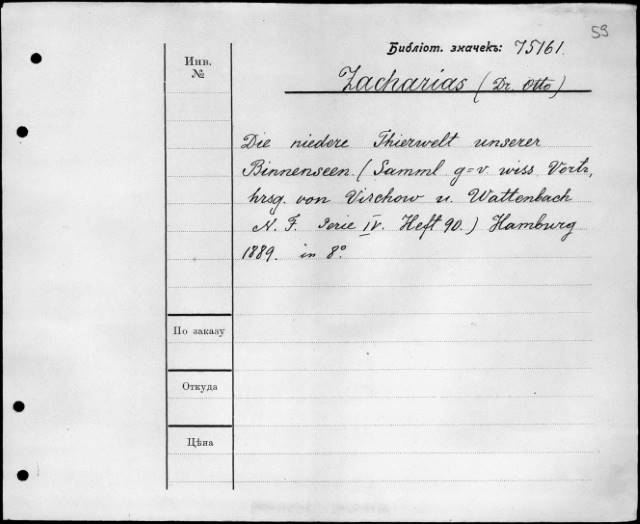 59
Библіот. значекъ: 75161.
Инв. №
Zacharias (Dr. Otto)
Die niedere Thierwelt unserer
Binnenseen. (Samml g=v. wiss Vortr,
hrsg. von Virchow u. Wattenbach
N. F. Serie IV. Heft 90.) Hamburg
1889. in 8°
По заказу
Откуда
Цѣна